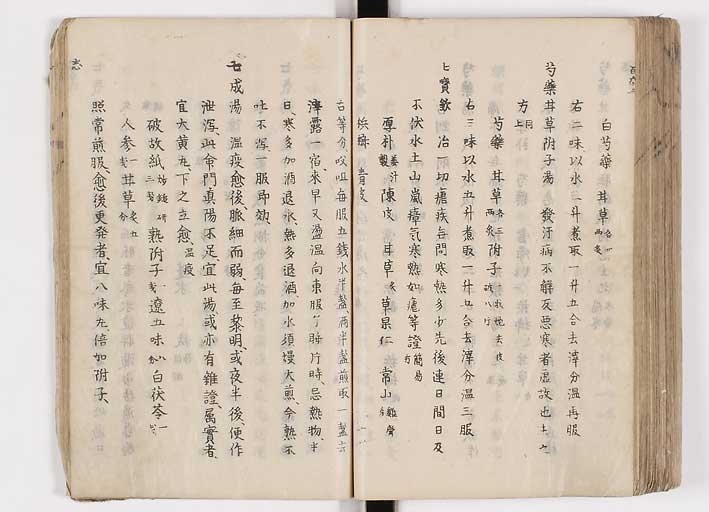 白芍藥 甘草 各一兩炙
右二味以水二升煮取一升五合去滓分温再服
芍藥甘草附子湯 發汗病不解反悪寒者虚故也
方同上
芍藥 甘草 各三兩炙 附子 一枚炮去皮破八片
右三味以水五升煮取一升五合去滓分温三服
七寳飲 治一切瘧疾無問寒熱多少先後連日間日及
不伏水土山嵐瘴氣寒熱如瘧等證 簡易方
厚朴 姜汁製 陳皮 甘草 炙 草果仁 常山
檳榔 青皮
右等分㕮咀毎服五錢水半盞酒半盞煎取一盞
露一宿來早又盪温向東服了睡片時忌熱物半
日寒多加酒退水熱多退酒加水須慢火煎令熱不
吐不瀉一服即効
七成湯 温疫愈後脈細而弱毎至黎明或夜半後便作
泄瀉此命門真陽不足宜此湯或亦有雜證属實者
宜大黄丸下之立愈 温疫
破故紙 炒鎚研三錢 熟附子 一錢 遼五味 八分 白茯苓 一錢
人参 一錢 甘草 炙五分
照常煎服愈後更發者宜八味丸倍加附子